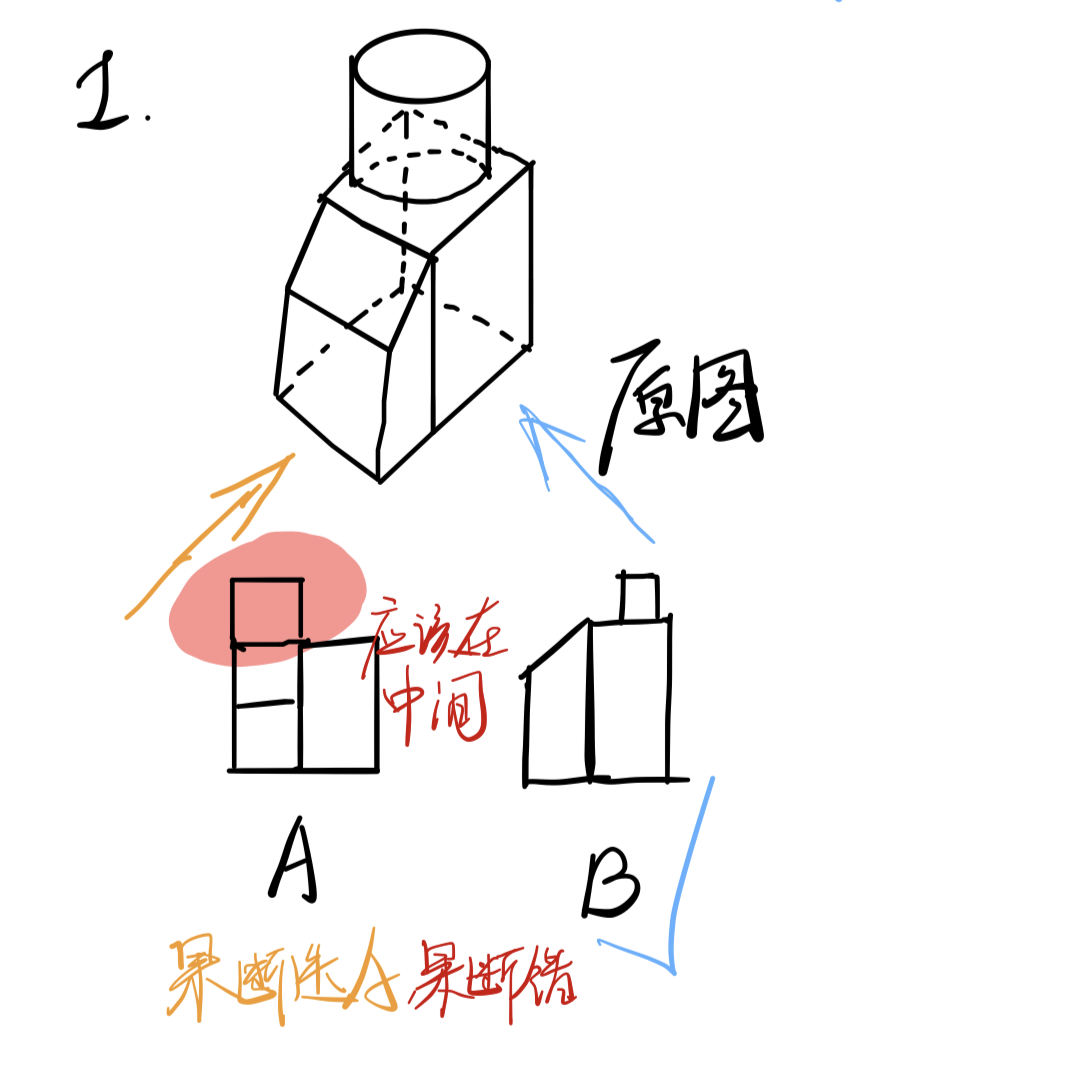 1.
原图
应该在
中间
A
B
果断选A 果断错